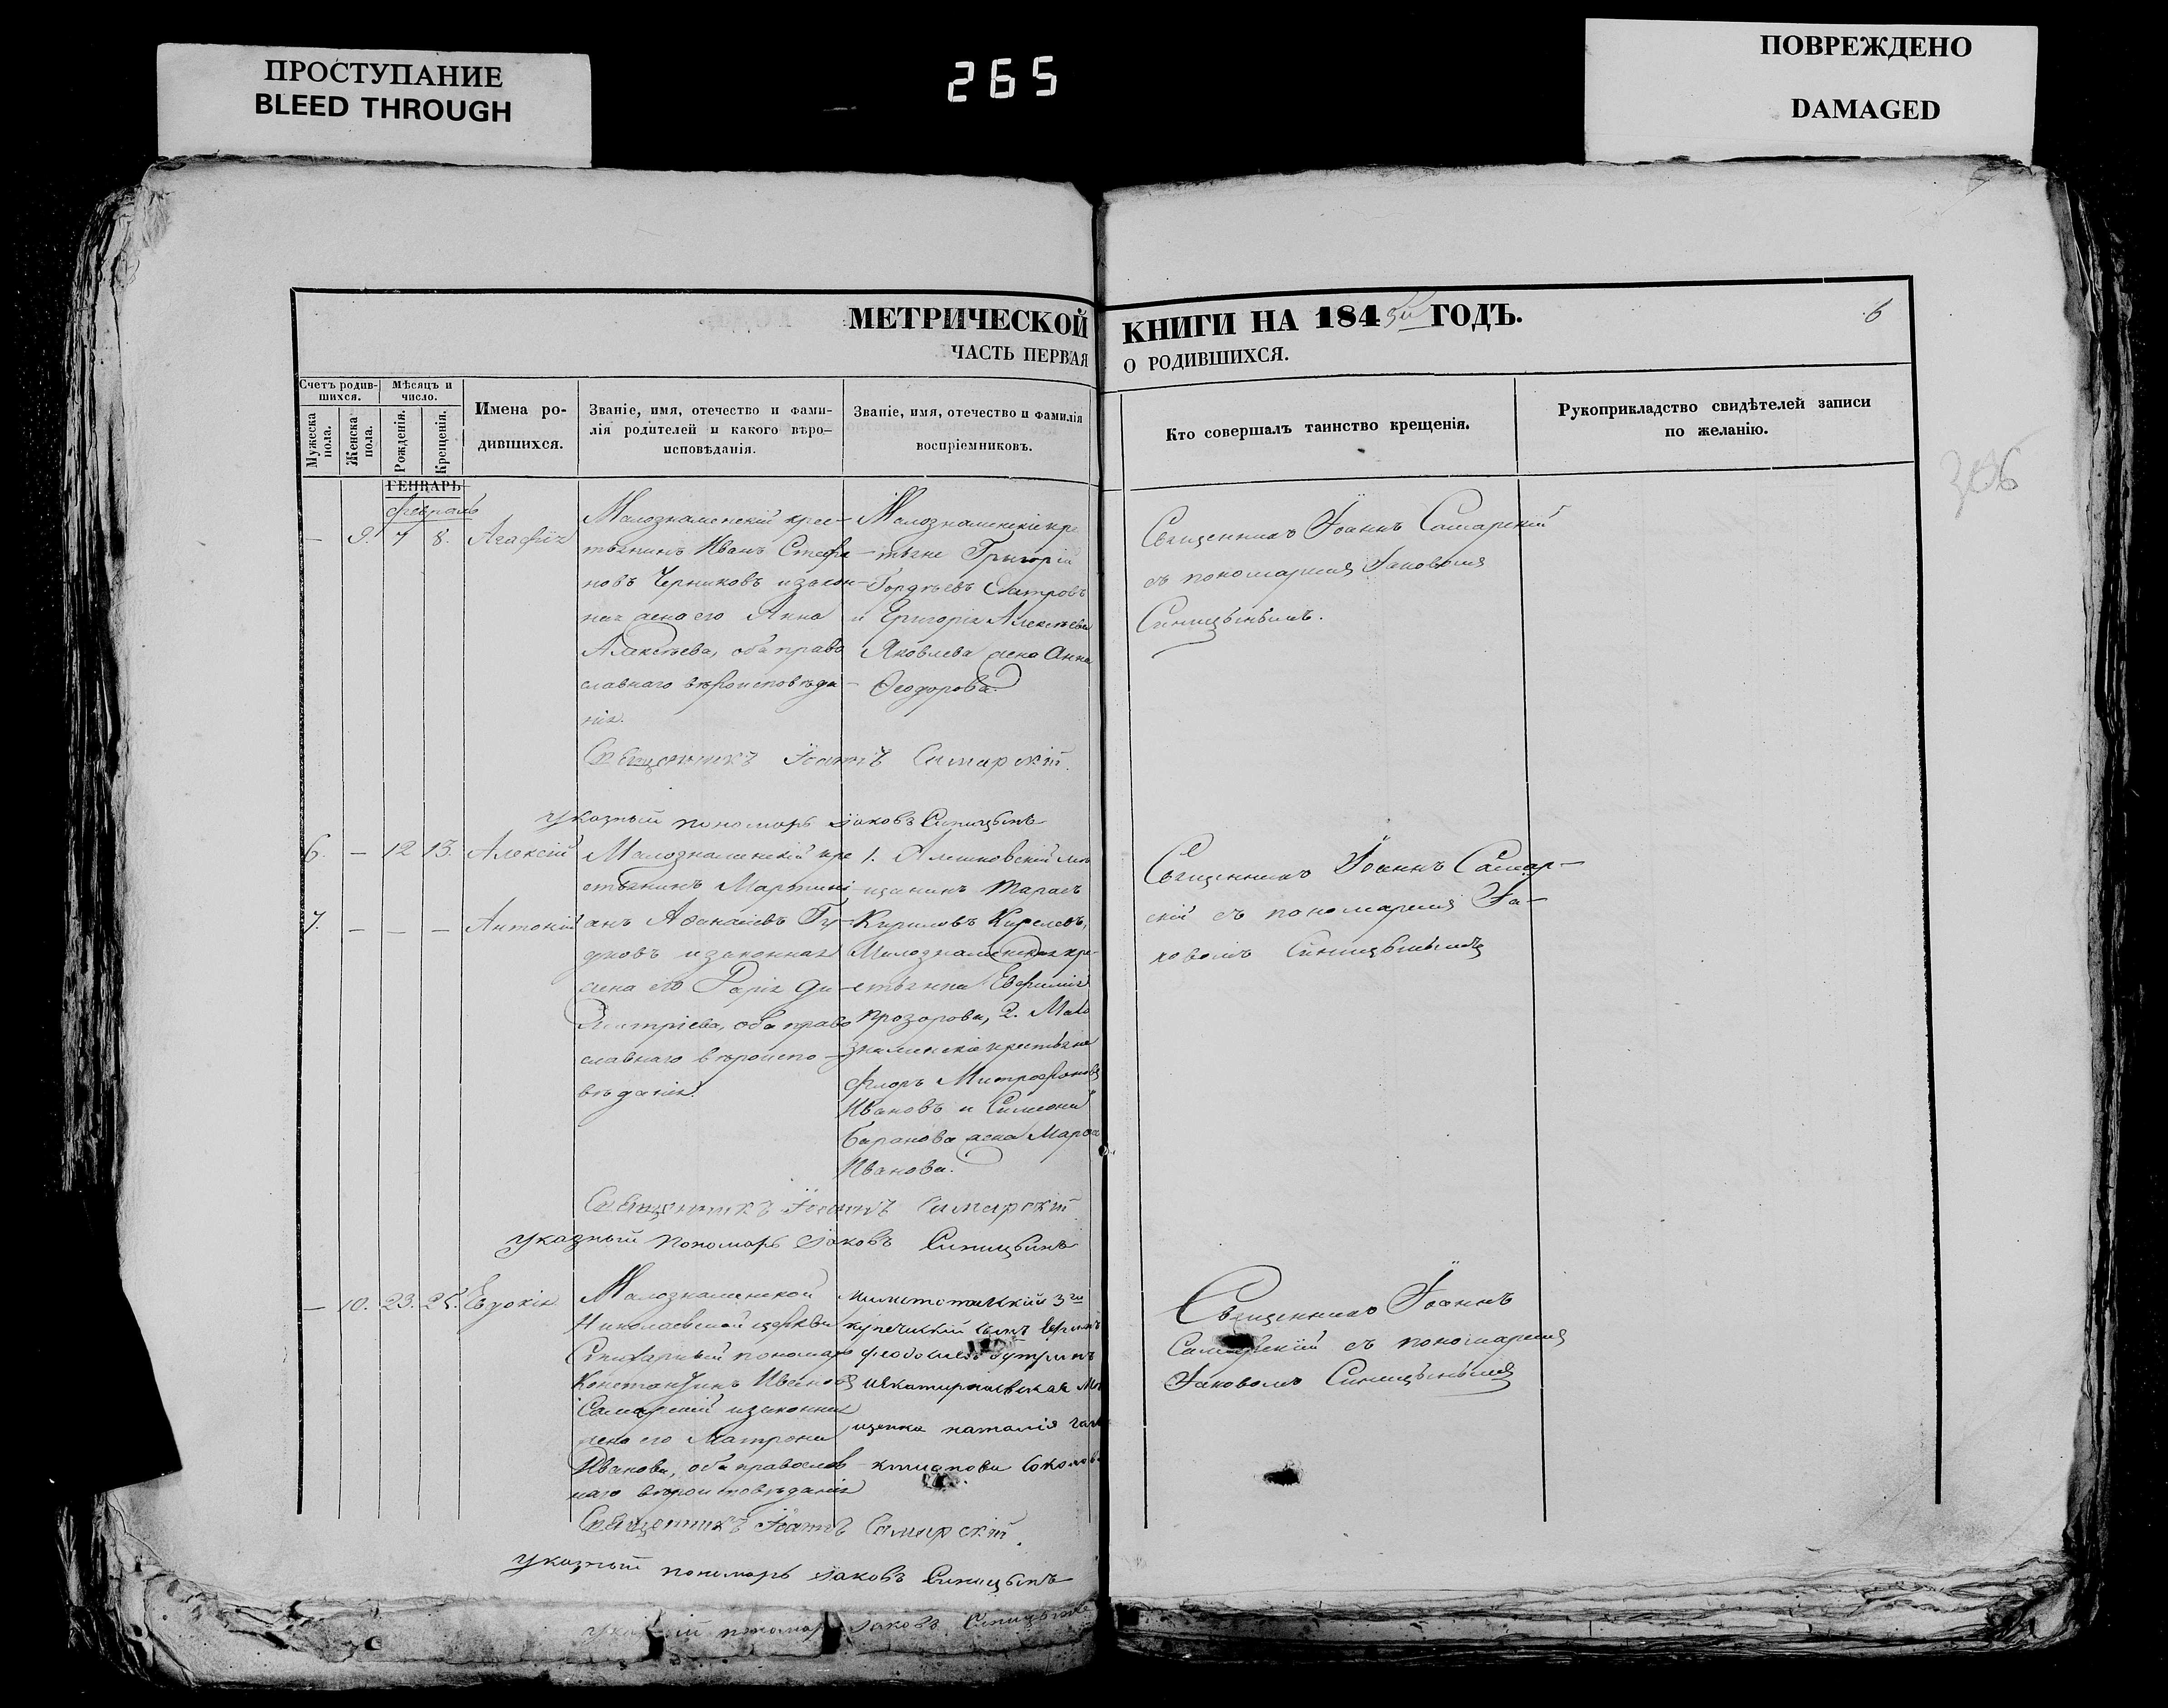 ПРОСТУПАНИЕ
BLEED THROUGH
265
ПОВРЕЖДЕНО
DAMAGED
МЕТРИЧЕСКОЙ КНИГИ НА 1845й ГОДЪ.
6
ЧАСТЬ ПЕРВАЯ О РОДИВШИХСЯ.
Счетъ родив-
шихся.
Мужеска пола.
Женска пола.
Мѣсяцъ и
число.
Рожденія.
Крещенія.
Имена ро-
дившихся.
Званіе, имя, отечество и фами-
лія родителей и какого вѣро-
исповѣданія.
Званіе, имя, отечество и фамилія
воспріемниковъ.
Кто совершалъ таинство крещенія.
Рукоприкладство свидѣтелей записи
по желанію.
306
ГЕНВАРЬ
Февраль
— 9. 7 8. Агафія
Малознаменскій крес-
тьянинъ Иванъ Стефа-
новъ Черниковъ и закон-
ная жена его Анна
Алексѣева, оба право
славнаго вѣроисповѣда-
нія.
Малознаменскіе кре
тьяне Григорій
Гордѣевъ
и Григорія Алексѣева
Яковлева жена Анна
Ѳеодорова.
Священникъ Іоаннъ Самарскій
съ пономаремъ Іаковомъ
Синицынымъ.
Священникъ Іоаннъ Самарскій.
указный пономарь Іаковъ Синицынъ
6. — 12 13. Алексій
7. — — — Антоній
Малознаменскій кре
стьянинъ Мартині-
анъ Аѳанасіевъ Гу-
дковъ и законная
жена его Дарія Ди-
митріева, оба право
славнаго вѣроиспо-
вѣданія.
1. Алешковскій мѣ
щанинъ Тарасъ
Кириловъ Киселевъ,
Малознаменская кре-
стьянка Евфимія
Прозорова, 2. Мало
знаменскіе крестьяне
Флоръ Митрофановъ
Ивановъ и Симеона
Баранова жена Марѳа
Иванова.
Священникъ Іоаннъ Самар-
скій съ пономаремъ Іа-
ковомъ Синицынымъ
Священникъ Іоаннъ Самарскій
указный пономарь Іаковъ Синицынъ
— 10. 23. 25. Евдокія
Малознаменской
Николаевской церкви
Стихарный пономарь
Константинъ Ивановъ
Самарскій и законная
жена его Матрона
Иванова, оба православ
наго вѣроисповѣданія
3ей
купеческій сынъ
щанка Наталія
Священникъ Іоаннъ
Самарскій съ пономаремъ
Іаковомъ Синицынымъ
Священникъ Іоаннъ Самарскій.
указный пономарь Іаковъ Синицынъ
указный пономарь Іаковъ Синицынъ